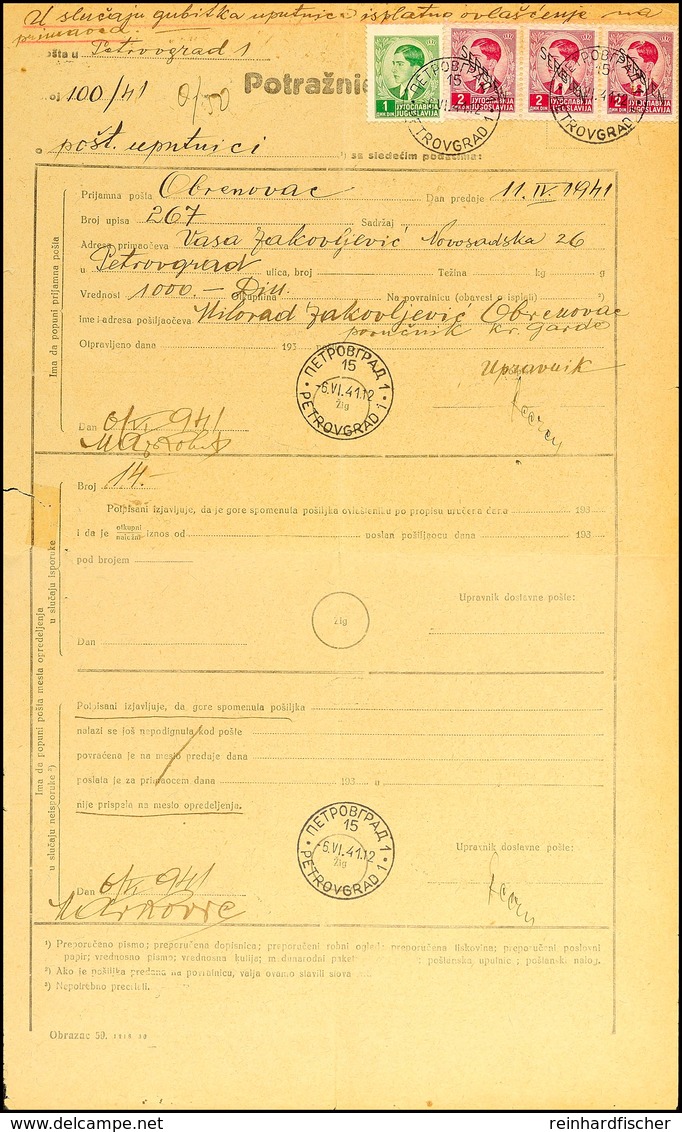 U slučaju gubitka uputnice isplatno ovlašćenje na
primaoca.
Pošta u Petrovgrad 1
Broj 100/41
Potražnic
o pošt. uputnici ¹) sa sledećim podacima:
1 ЈУГОСЛАВИЈА JUGOSLAVIJA
2 ЈУГОСЛАВИЈА JUGOSLAVIJA
2 ЈУГОСЛАВИЈА JUGOSLAVIJA
2 ЈУГОСЛАВИЈА JUGOSLAVIJA
Ima da popuni prijamna pošta
Prijamna pošta Obrenovac Dan predaje 11.IV.1941
Broj upisa 267 Sadržaj
Adresa primaočeva Vasa Jakovljević Novosadska 26
u Petrovgrad ulica, broj Težina kg g
Vrednost 1000.- Din. Otkupnina Na povratnicu (obavest o isplati) ²)
Ime i adresa pošiljaočeva Milorad Jakovljević Obrenovac
poručnik kr. garde
Otpravljeno dana 193
Upravnik
ПЕТРОВГРАД 1
15
-6.VI.41.12
Žig
PETROVGRAD 1
Dan 6/VI 941
Ima da popuni pošta mesta opredeljenja
u slučaju isporuke
Broj 14.-
Potpisani izjavljuje, da je gore spomenuta pošiljka ovlašteniku po propisu uručena dana 193
i da je otkupni naložni iznos od poslan pošiljaocu dana 193
pod brojem
Upravnik dostavne pošte:
Žig
Dan
u slučaju neisporuke ³)
Potpisani izjavljuje, da gore spomenuta pošiljka
nalazi se još nepodignuta kod pošte
povraćena je na mesto predaje dana
poslata je za primaocem dana 193 u
nije prispela na mesto opredeljenja.
ПЕТРОВГРАД 1
15
-6.VI.41.12
Žig
PETROVGRAD 1
Upravnik dostavne pošte:
Dan 6/VI 941
¹) Preporučeno pismo; preporučena dopisnica; preporučeni robni ogled; preporučena tiskovina; preporučeni poslovni
papir; vrednosno pismo; vrednosna kutija; međunarodni paket; poštanska uputnica; poštansk. nalog.
²) Ako je pošiljka predana na povratnicu, valja ovamo staviti slova
³) Nepotrebno precrtati.
Obrazac 50.
reinhardfischer